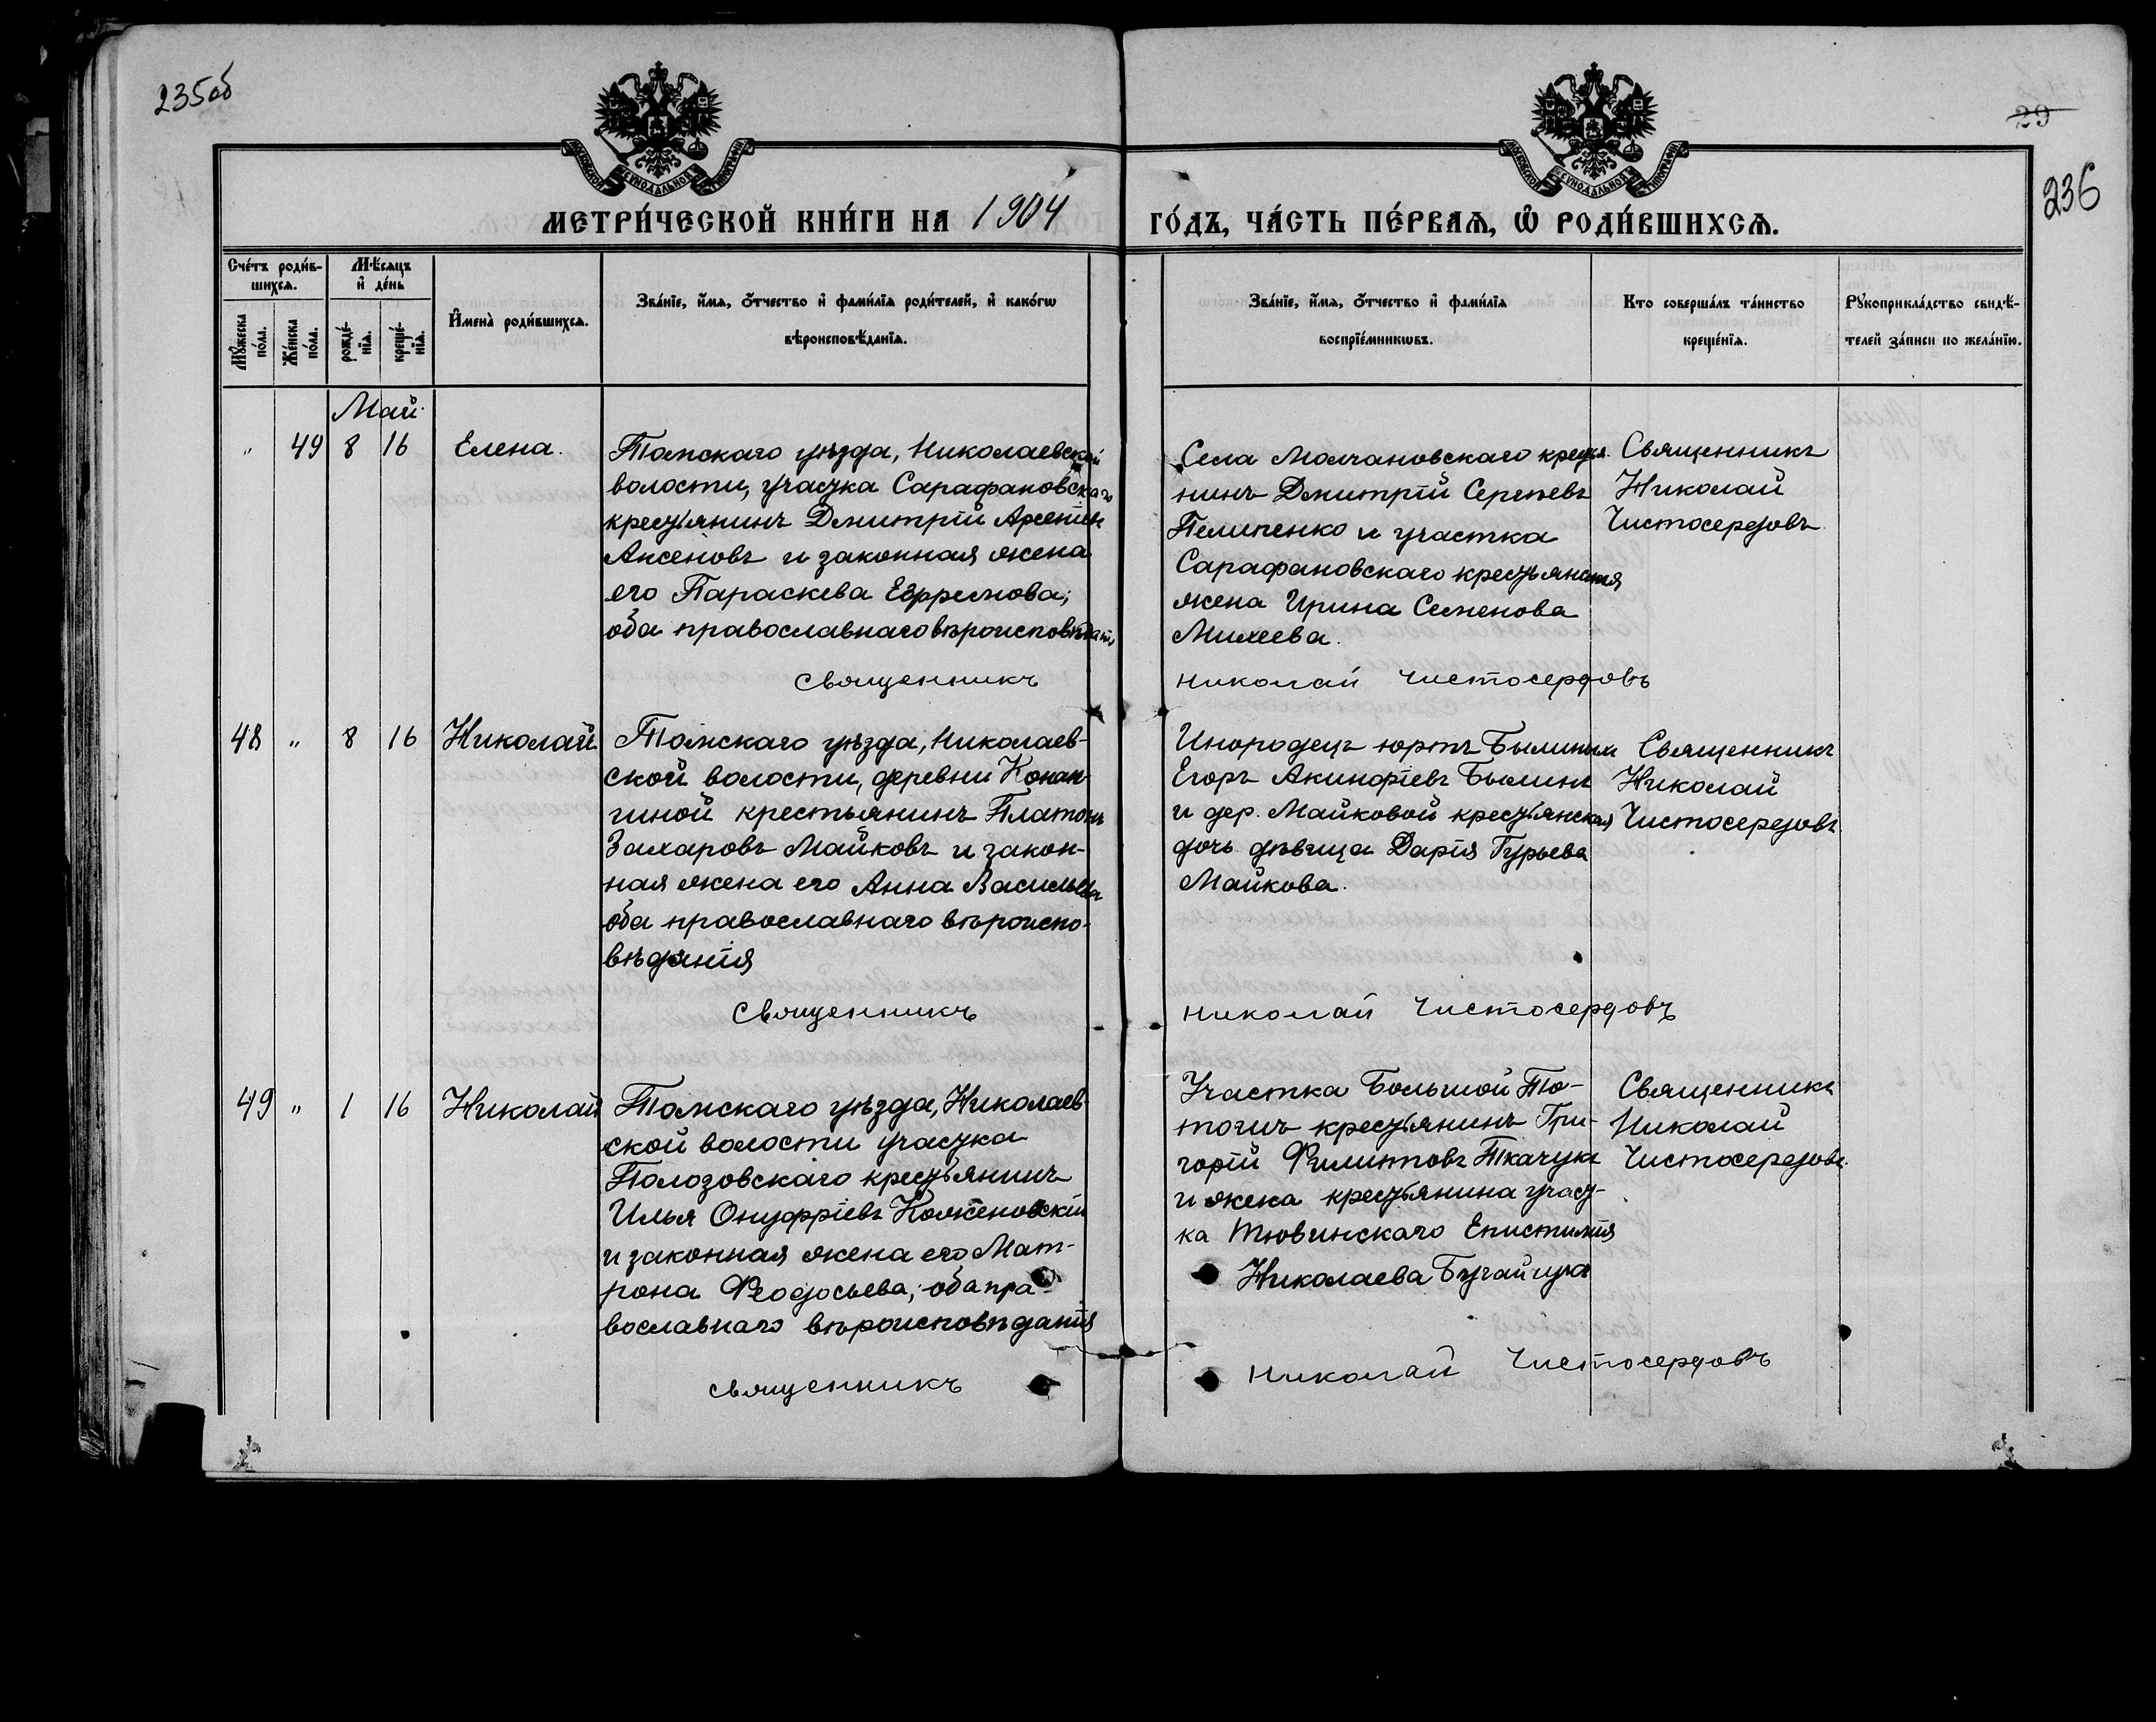 235об
29
236
МОСКОВСКОЙ СУНОДАЛЬНОЙ ТИПОГРАФІИ
МОСКОВСКОЙ СУНОДАЛЬНОЙ ТИПОГРАФІИ
МЕТРИ́ЧЕСКОЙ КНИ́ГИ НА 1904 ГО́ДЪ, ЧА́СТЬ ПЕ́РВАѦ, Ѡ҆ РОДИ́ВШИХСѦ.
Сче́тъ роди́в-
шихсѧ.
Мꙋ́жеска по́ла.
Же́нска по́ла.
Мѣ́сѧцъ и҆ де́нь
рожде́-нїѧ.
креще́-нїѧ.
И҆мена̀ роди́вшихсѧ.
Зва́нїе, и҆́мѧ, ѻ҆́тчество и҆ фами́лїѧ роди́телей, и҆ како́гѡ
вѣроисповѣ́данїѧ.
Зва́нїе, и҆́мѧ, ѻ҆́тчество и҆ фами́лїѧ
воспрїе́мникѡвъ.
Кто соверша́лъ та́инство
креще́нїѧ.
Рꙋкоприкла́дство свидѣ́-
телей за́писи по жела́нїю.
Май
" 49 8 16 Елена.
Томскаго уѣзда, Николаевской
волости, участка Сарафановскаго
крестьянинъ Димитрій Арсеніев
Аксеновъ и законная жена
его Параскева Ефремова;
оба православнаго вѣроисповѣданія
Священникъ
Села Молчановскаго крестья
нинъ Димитрій Сергѣевъ
Пелипенко и участка
Сарафановскаго крестьянская
жена Ирина Семенова
Михеева.
Николай Чистосердовъ
Священникъ
Николай
Чистосердовъ
48 " 8 16 Николай
Томскаго уѣзда, Николаев-
ской волости, деревни Конан-
гиной крестьянинъ Платонъ
Захаровъ Майковъ и закон-
ная жена его Анна Васильева
оба православнаго вѣроиспо-
вѣданія
Священникъ
Инородецъ юртъ Былиныхъ
Егоръ Акинфіевъ Былинъ
и дер. Майковой крестьянская
дочь дѣвица Дарія Гурьева
Майкова.
Николай Чистосердовъ
Священникъ
Николай
Чистосердовъ
49 " 1 16 Николай
Томскаго уѣзда, Николаев-
ской волости участка
Полозовскаго крестьянинъ
Илья Онуфріевъ
и законная жена его Мат-
рона Ѳеодосьева; оба пра-
вославнаго вѣроисповѣданія
Священникъ
Участка Большой То-
крестьянинъ Гри-
горій Филиповъ Ткачукъ
и жена крестьянина участ-
ка Тювинскаго Епистимія
Николаева
Николай Чистосердовъ
Священникъ
Николай
Чистосердовъ